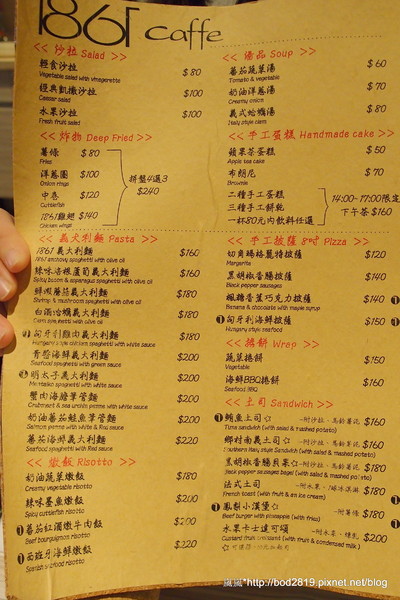 1861 caffe
<< 沙拉 Salad >>
輕食沙拉 $80
Vegetable salad with vinegarette
經典凱撒沙拉 $100
Caesar salad
水果沙拉 $100
Fresh fruit salad
<< 炸物 Deep Fried >>
薯條 $80
Fries
洋蔥圈 $100
Onion rings
中卷 $120
Cuttlefish
1861雞翅 $140
Chicken wings
拼盤4選3
$240
<< 義大利麵 Pasta >>
1861 義大利麵 $160
1861 anchovy spaghetti with olive oil
辣味培根蘆筍義大利麵 $160
Spicy bacon & asparagus spaghetti with olive oil
鮮蝦蘑菇義大利麵 $180
Shrimp & mushroom spaghetti with olive oil
白酒蛤蠣義大利麵 $180
Clam spaghetti with olive oil
匈牙利雞肉義大利麵 $180
Hungary style chicken spaghetti with white sauce
青醬海鮮義大利麵 $200
Seafood spaghetti with green sauce
明太子義大利麵 $200
Mentaiko spaghetti with white sauce
蟹肉海膽筆管麵 $200
奶油蕃茄鮭魚筆管麵 $200
Salmon penne with White & Red sauce
蕃茄海鮮義大利麵 $220
Seafood spaghetti with Red sauce
<< 燉飯 Risotto >>
奶油蔬菜燉飯 $180
Creamy vegetable risotto
辣味墨魚燉飯 $200
Spicy cuttlefish risotto
蕃茄紅酒燉牛肉飯 $200
Beef bourguignon risotto
西班牙海鮮燉飯 $220
Spanish seafood risotto
<< 湯品 Soup >>
蕃茄蔬菜湯 $60
Tomato & vegetable
奶油洋蔥湯 $70
Creamy onion
義式蛤蠣湯 $80
Italy style clam
<< 手工蛋糕 Handmade cake >>
蘋果茶蛋糕 $50
Apple tea cake
布朗尼 $70
Brownie
二種手工蛋糕
三種手工餅乾
一杯80元內飲料任選
14:00~17:00限定
下午茶 $160
<< 手工披薩 8吋 Pizza >>
切爾瑪格麗特披薩 $120
Margarita
黑胡椒香腸披薩 $140
Black pepper sausages
楓糖香蕉巧克力披薩 $140
Banana & chocolate with maple syrup
匈牙利海鮮披薩 $150
Hungary style seafood
<< 捲餅 Wrap >>
蔬菜捲餅 $150
Vegetable
海鮮BBQ捲餅 $160
Seafood BBQ
<< 土司 Sandwich >>
鮪魚土司☆ ~附沙拉、馬鈴薯泥 $160
鄉村南義土司☆ ~附沙拉、馬鈴薯泥 $160
黑胡椒香腸貝果☆ ~附沙拉、馬鈴薯泥 $180
Black pepper sausages bagel (with salad & mashed potato)
法式土司 ~附水果、冰淇淋 $180
French toast (with fruit & an ice cream)
鳳梨小漢堡☆ ~附薯條 $180
Beef burger with pineapple (with fries)
水果卡士達可頌 ~附水果、煉乳 $200
Custard fruit croissant (with fruit & condensed milk)
瘋瘋*http://bod2819.pixnet.net/blog